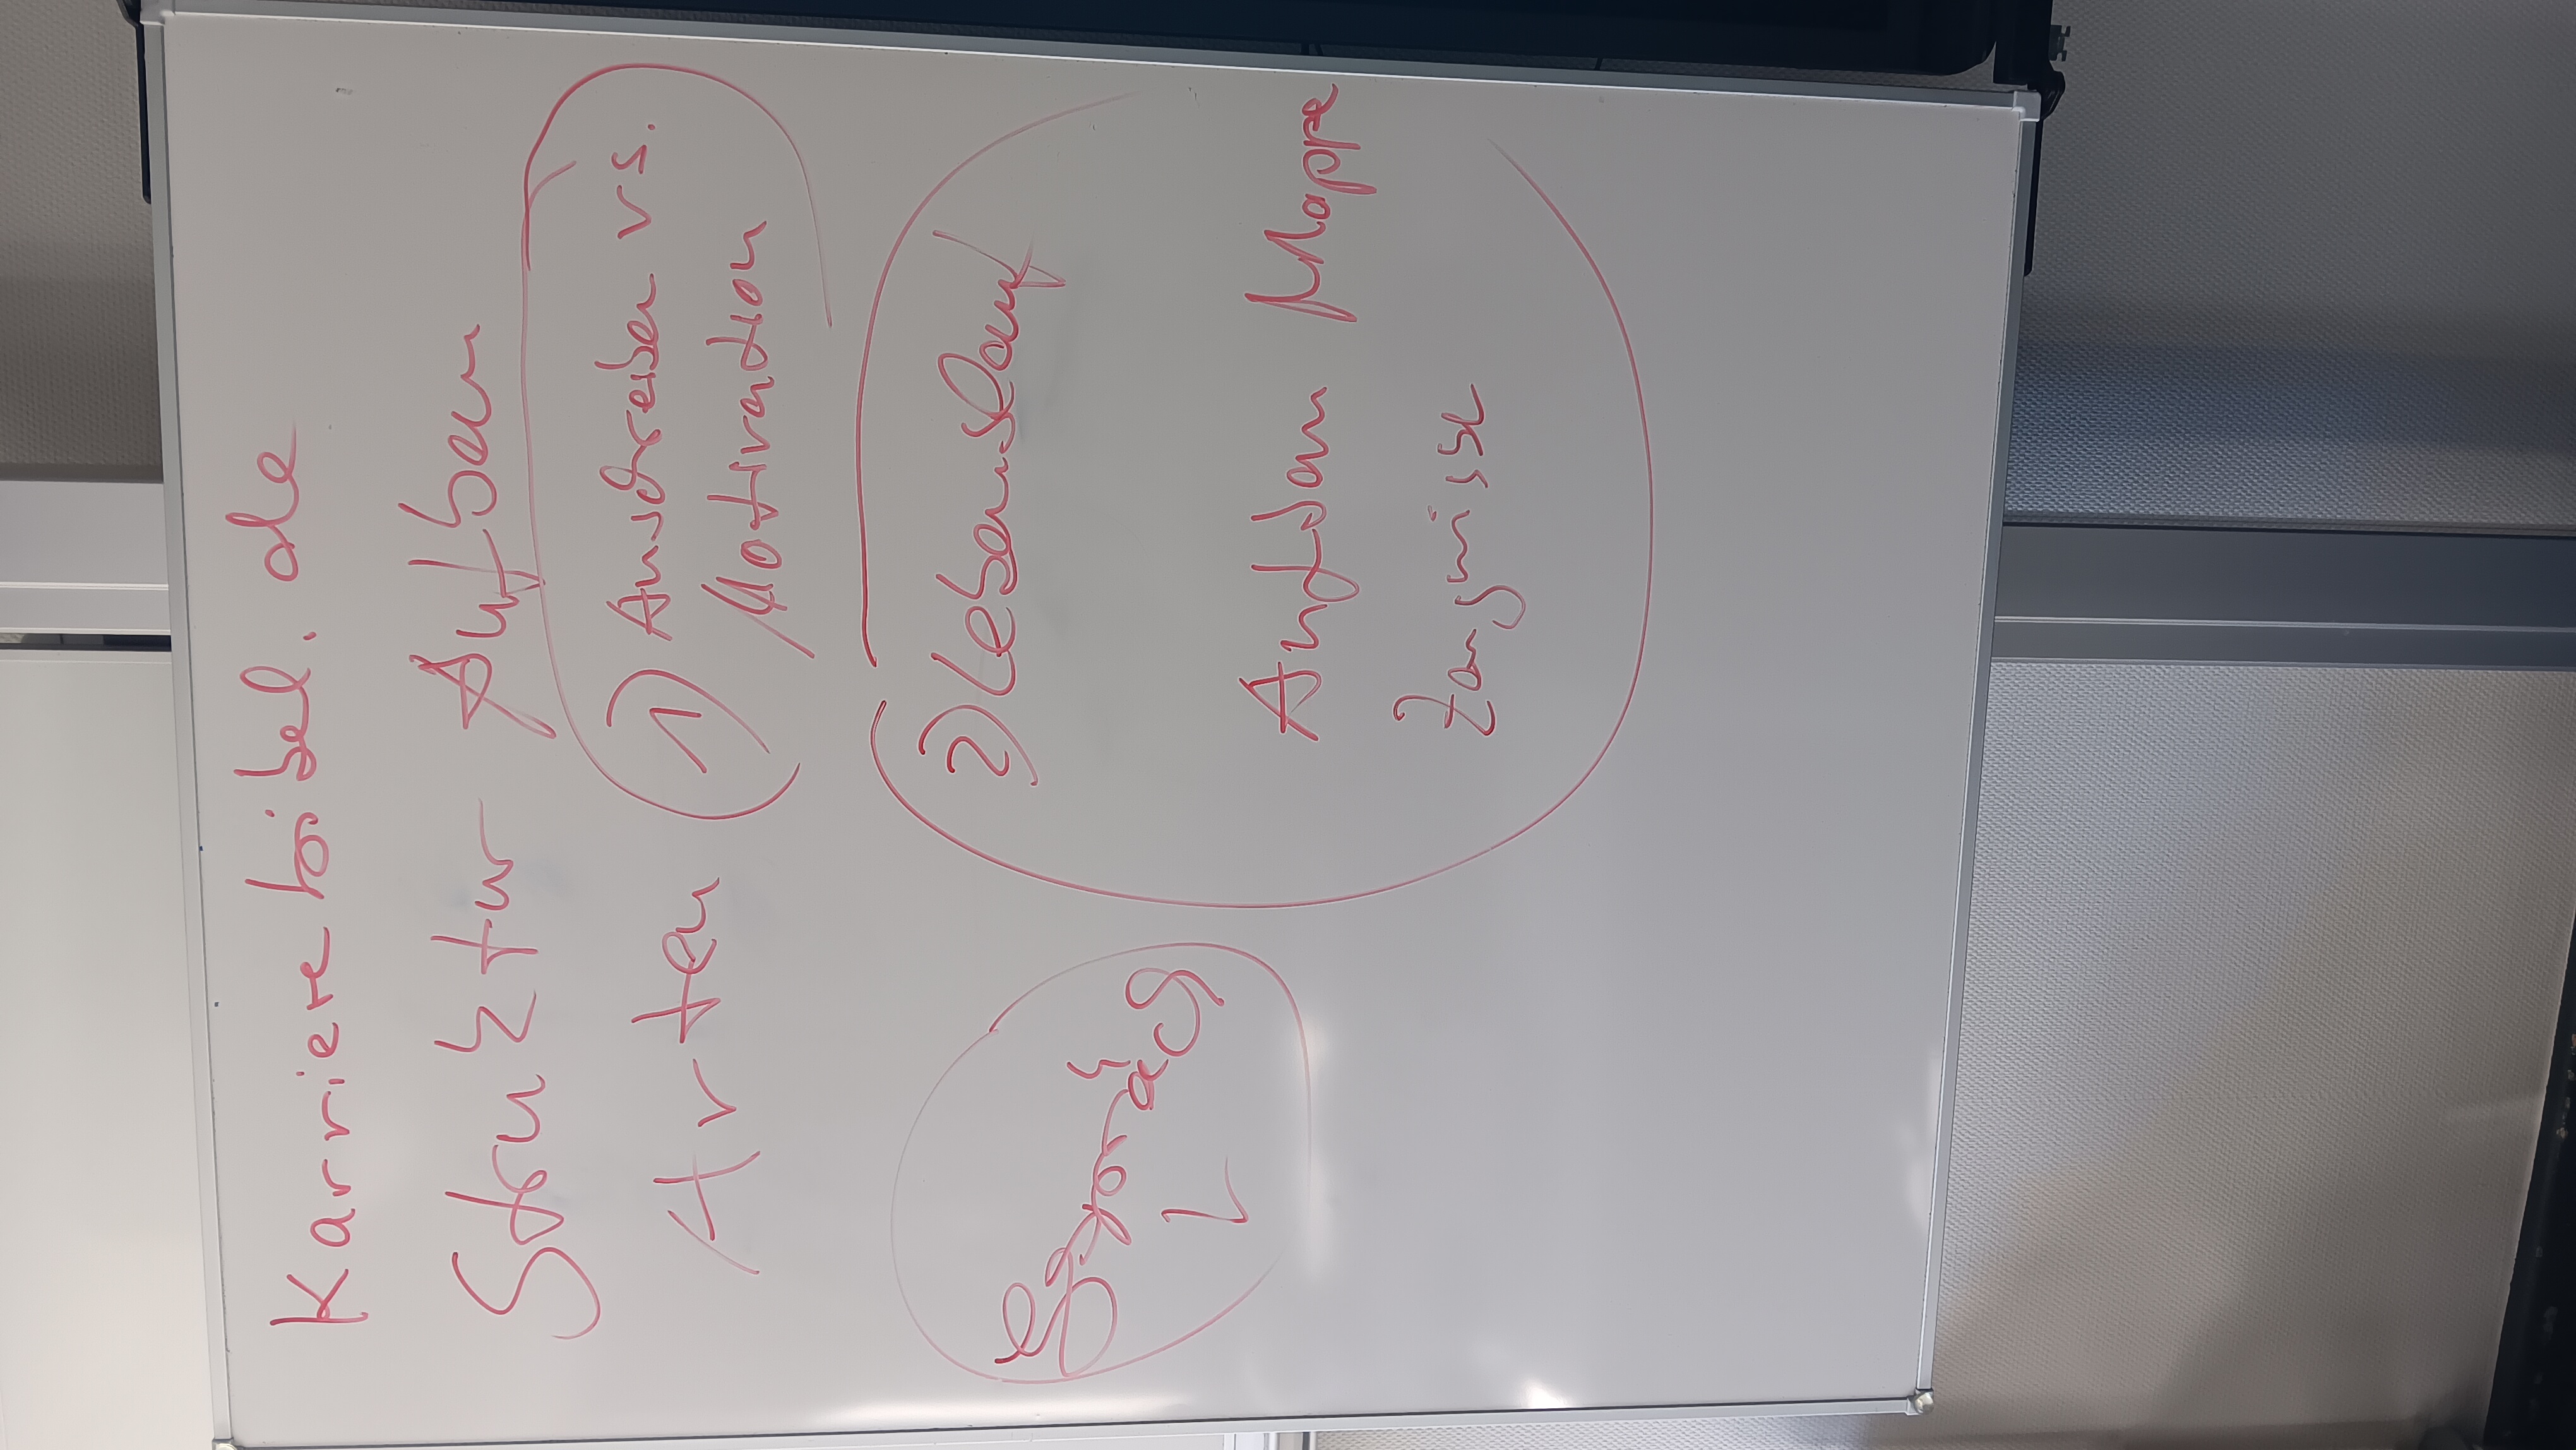 Karrierebibel.de
Struktur Aufbau
Arten
1) Anschreiben vs.
Motivation
2) Lebenslauf
Mappe
Zeugnisse
Gespräch